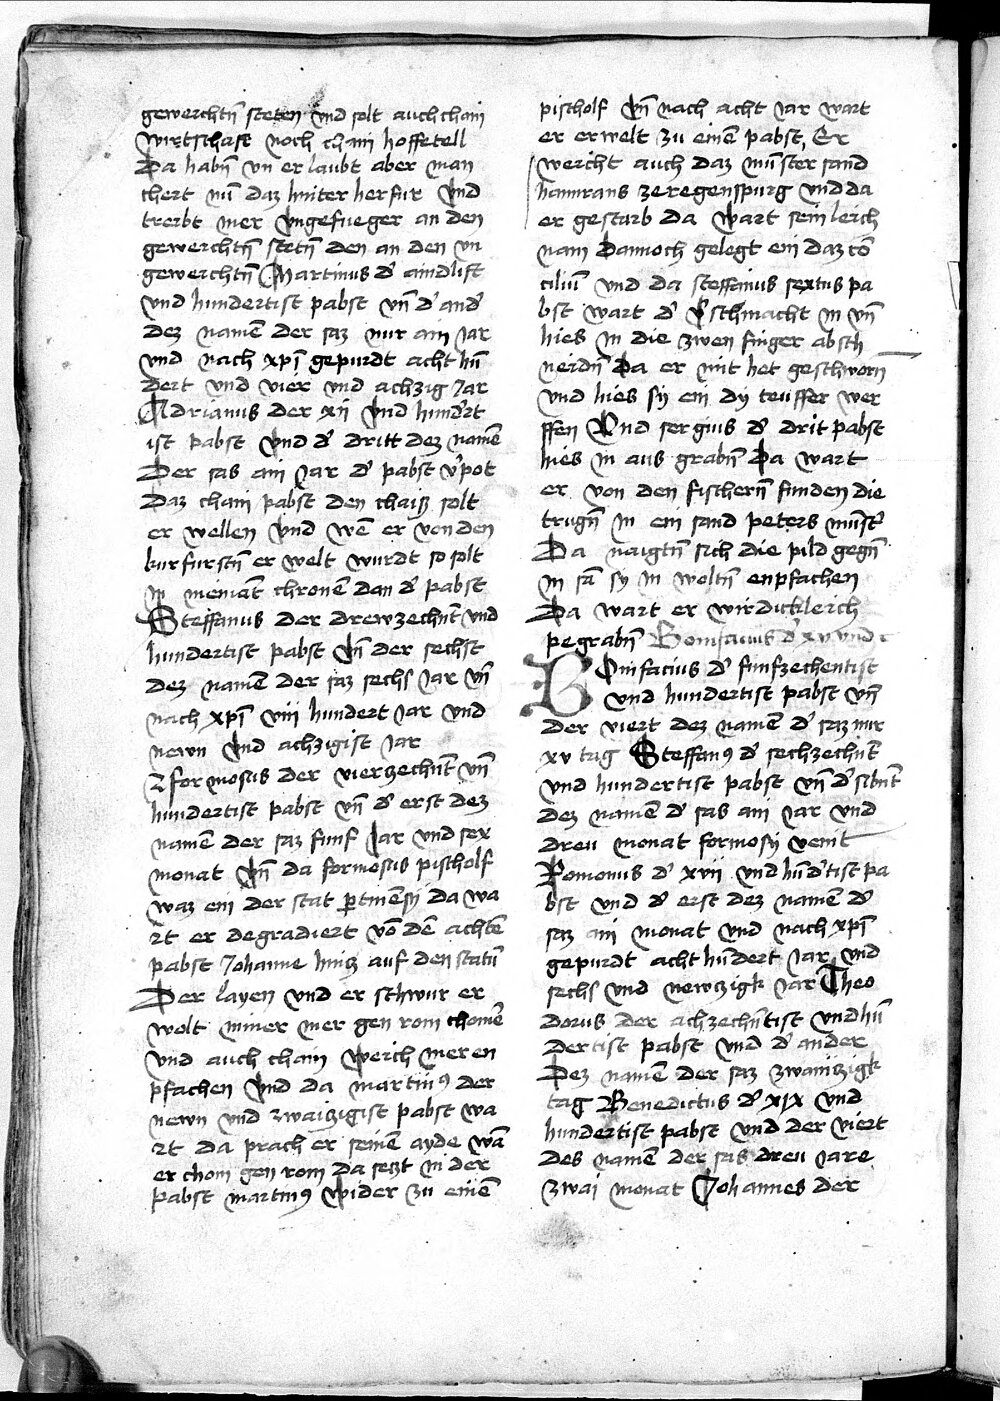 gewerchtn̄ steten vnd solt auch chain
wirtschaft noch chain hoffetell
Da habn̄ vn er laubt aber man
chert nū daz hinter herfur vnd
treibt mer vngefueger an den
gewerchtn̄ stetn̄ den an den vn
gewerchtn̄ Martinus d᷑ aindlift
vnd hundertist pabst vn̄ d᷑ and᷑
dez namē der saz nur ain Jar
vnd nach xp̄i gepurdt acht hū
dert vnd vier vnd achzig Jar
Adrianus der xii vnd hund᷑t
ist pabst vnd d᷑ dritt dez namē
Der sas ain Jar d᷑ pabst v᷑pot
Daz chain pabst den chaiß solt
er wellen vnd wē er von den
kurfurstn̄ er welt wurdt so solt
in nieniāt chronē dan d᷑ pabst
Steffanus der drewzechn̄t vnd
hundertist pabst vn̄ der sechst
dez namē der saz sechs Jar vn̄
nach xp̄i viii hundert Jar vnd
newn vnd achzigist Jar
Formosus der vierzechn̄t vn̄
hundertist pabst vn̄ d᷑ erst dez
namē der saz funf Jar vnd sex
monat vn̄ da formosus pischolf
waz ein der stat p̱tinēsy da wa
rt er degradiert vō dē achtē
pabst Johanne hintz auf den statū
Der layen vnd er schwur er
wolt nimer mer gen rom chomē
vnd auch chain werch mer en
pfachen vnd da martin9 der
newn vnd zwaizigist pabst wa
rt da prach er seinē ayde wā
er chom gen rom da setzt in der
pabst martin9 wider zu einē
pischolf vn̄ nach acht Jar wart
er erwelt zu einē pabst, Er
weicht auch daz mūster sand
haimrans zeregenspurg vnd da
er gestarb da wart sein leich
nam dannoch gelegt ein daz cō
ciliū vnd da steffanus sextus pa
bst wart d᷑ v᷑schmacht in vn̄
hies in die zwen finger absch
neidn̄ Da er mit het geschworn̄
vnd hies sy ein dy teuffer wer
ffen Vnd sergius d᷑ drit pabst
hies in aus grabn̄ Da wart
er von den fischern̄ funden die
trugn̄ in ein sand peters mūst᷑
Da naigtn̄ sich die pild gegn̄
in sā sy in woltn̄ enpfachen
Da wart er wirdickleich
pegrabn̄ Bonifacius d᷑ xv vnd
Bonifacius d᷑ funfzechentist
vnd hundertist pabst vn̄
der viert dez namē d᷑ saz nur
xv tag Steffan9 d᷑ sechzechn̄t
vnd hundertist pabst vn̄ d᷑ sibn̄t
dez namē d᷑ sas ain Jar vnd
dreu monat formosy venit
Romonus d᷑ xvii vnd hūd᷑tist pa
bst vnd d᷑ erst dez namē d᷑
saz ain monat vnd nach xp̄i
gepurdt acht hūdert Jar vnd
sechs vnd newzigk Jar Theo
dorus der achzechn̄tist vnd hū
dertist pabst vnd d᷑ ander
Dez namē der saz zwainzigk
tag Benedictus d᷑ xix vnd
hundertist pabst vnd der viert
des namē der sas dreu Jare
zwai monat Johannes der